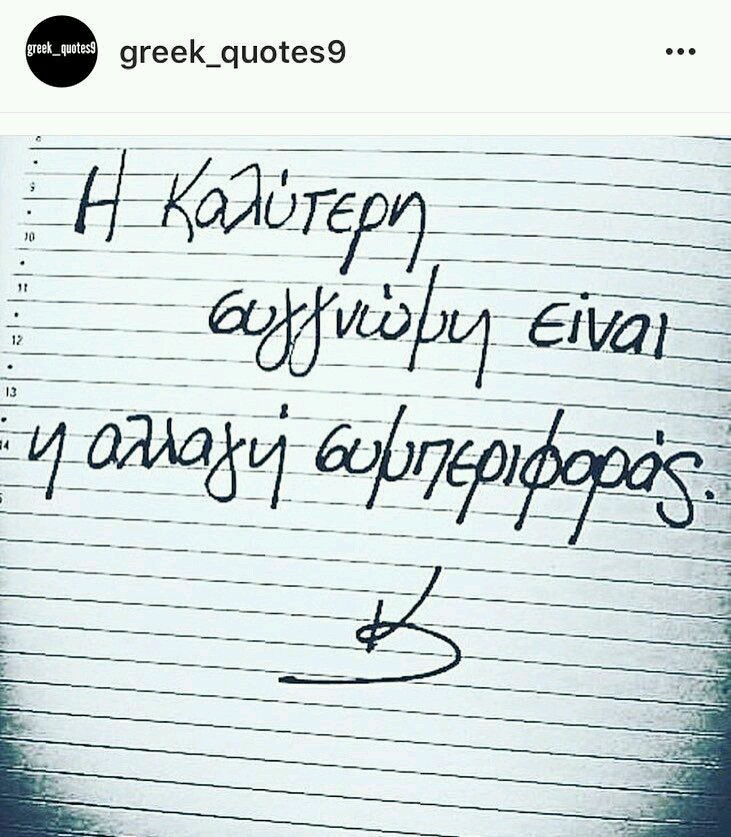 greek_quotes9
greek_quotes9
8
9
10
11
12
13
14
Η καλύτερη
συγγνώμη είναι
η αλλαγή συμπεριφοράς.